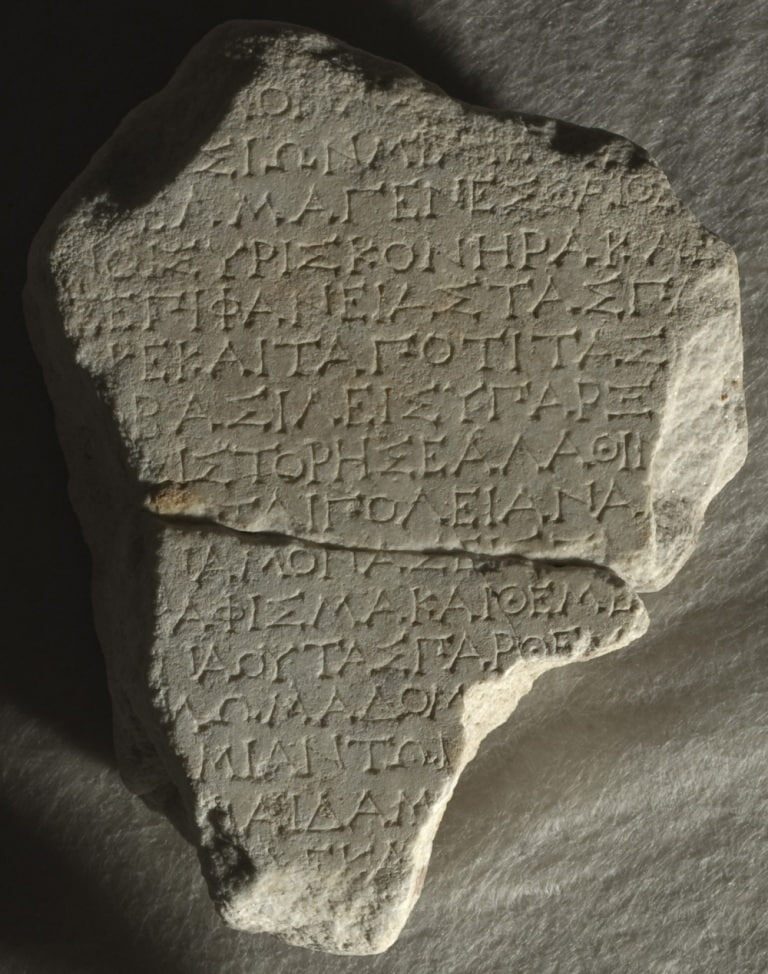 ΣΙΩΝΜΙ
ΑΜΑΓΕΝΕΣΘΑΙΟ
ΟΙΣΥΡΙΣΚΟΝΗΡΑΚΛ
ΕΠΙΦΑΝΕΙΑΣΤΑΣΠ
ΕΚΑΙΤΑΠΟΤΙΤΑΣ
ΒΑΣΙΛΕΙΣΥΠΑΡΞ
ΙΣΤΟΡΗΣΕΑΛΑΘΙ
ΤΑΙΠΟΛΕΙΑΝΑ
ΙΑΜΟΝΑΣΕ
ΑΦΙΣΜΑΚΑΙΘΕΜΕ
ΑΟΥΤΑΣΠΑΡΘΕ
ΛΩΜΑΔΟΜ
ΜΙΑΝΤΩΙ
ΑΙΔΑΜ